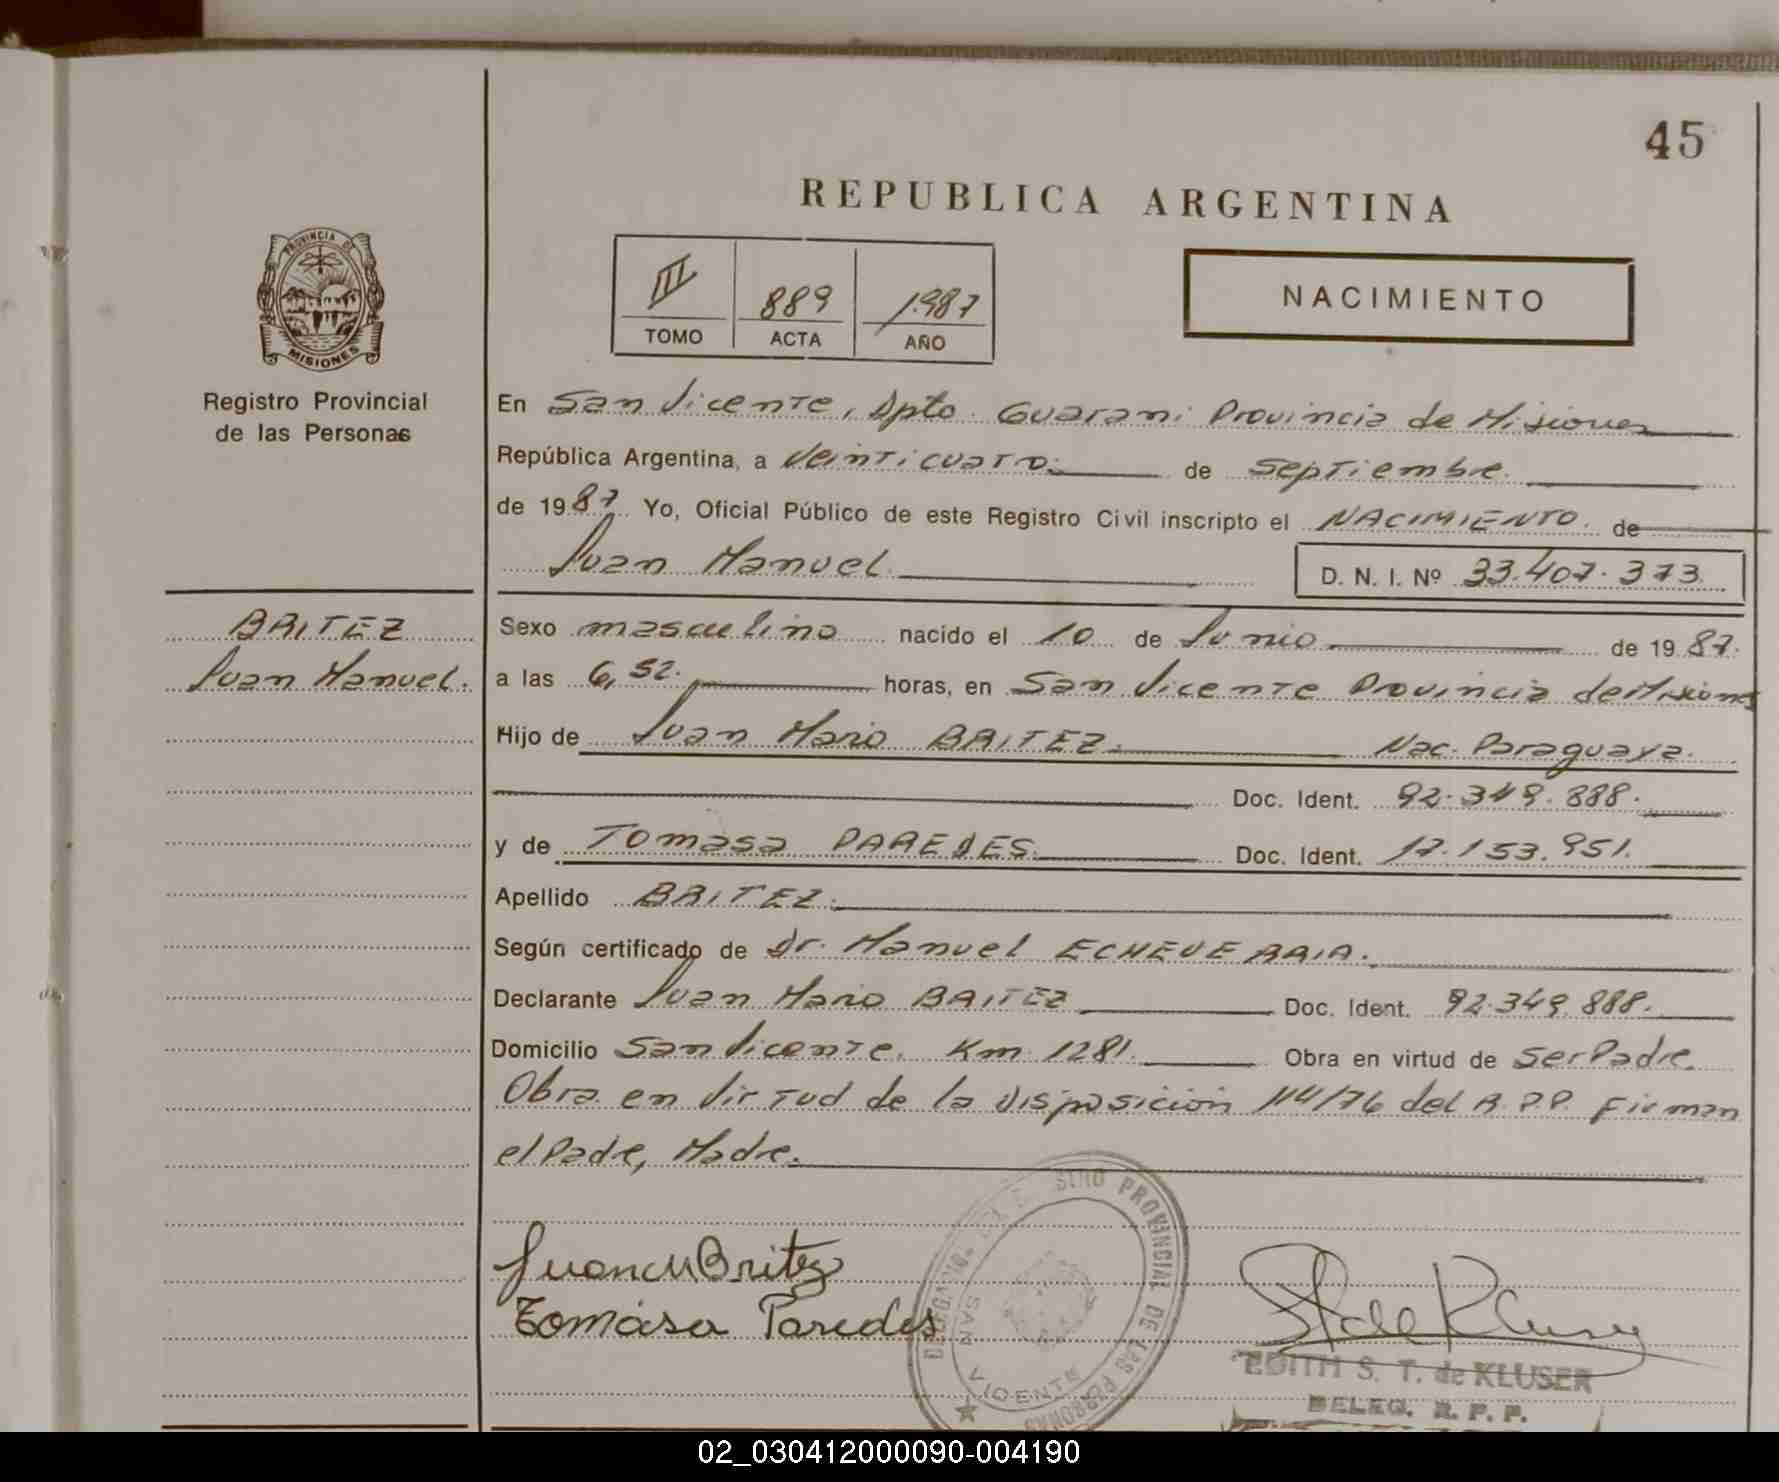 45
REPUBLICA ARGENTINA
PROVINCIA DE
MISIONES
Registro Provincial
de las Personas
III 889 1987
TOMO ACTA AÑO
NACIMIENTO
En San Vicente, Dpto. Guarani Provincia de Misiones
República Argentina, a Veinticuatro. de Septiembre.
de 1987. Yo, Oficial Público de este Registro Civil inscripto el NACIMIENTO. de
Juan Manuel. D. N. I. Nº 33.407.373
BRITEZ
Juan Manuel.
Sexo masculino nacido el 10 de Junio de 1987.
a las 6,52. horas, en San Vicente Provincia de Misiones
Hijo de Juan Mario BRITEZ. Nac. Paraguaya.
Doc. Ident. 92.349.888.
y de Tomasa PAREDES. Doc. Ident. 17.153.951.
Apellido BRITEZ.
Según certificado de Dr. Manuel ECHEVERRIA.
Declarante Juan Mario BRITEZ Doc. Ident. 92.349.888.
Domicilio San Vicente. Km. 1281. Obra en virtud de Ser Padre.
Obra en Virtud de la Disposición 114/76 del R.P.P. Firman
el Padre, Madre.
Juan M Britez
Tomasa Paredes
PROVINCIAL DE LAS PERSONAS
SAN VICENTE
EDITH S. T. de KLUSER
DELEG. R. P. P.
02_030412000090-004190